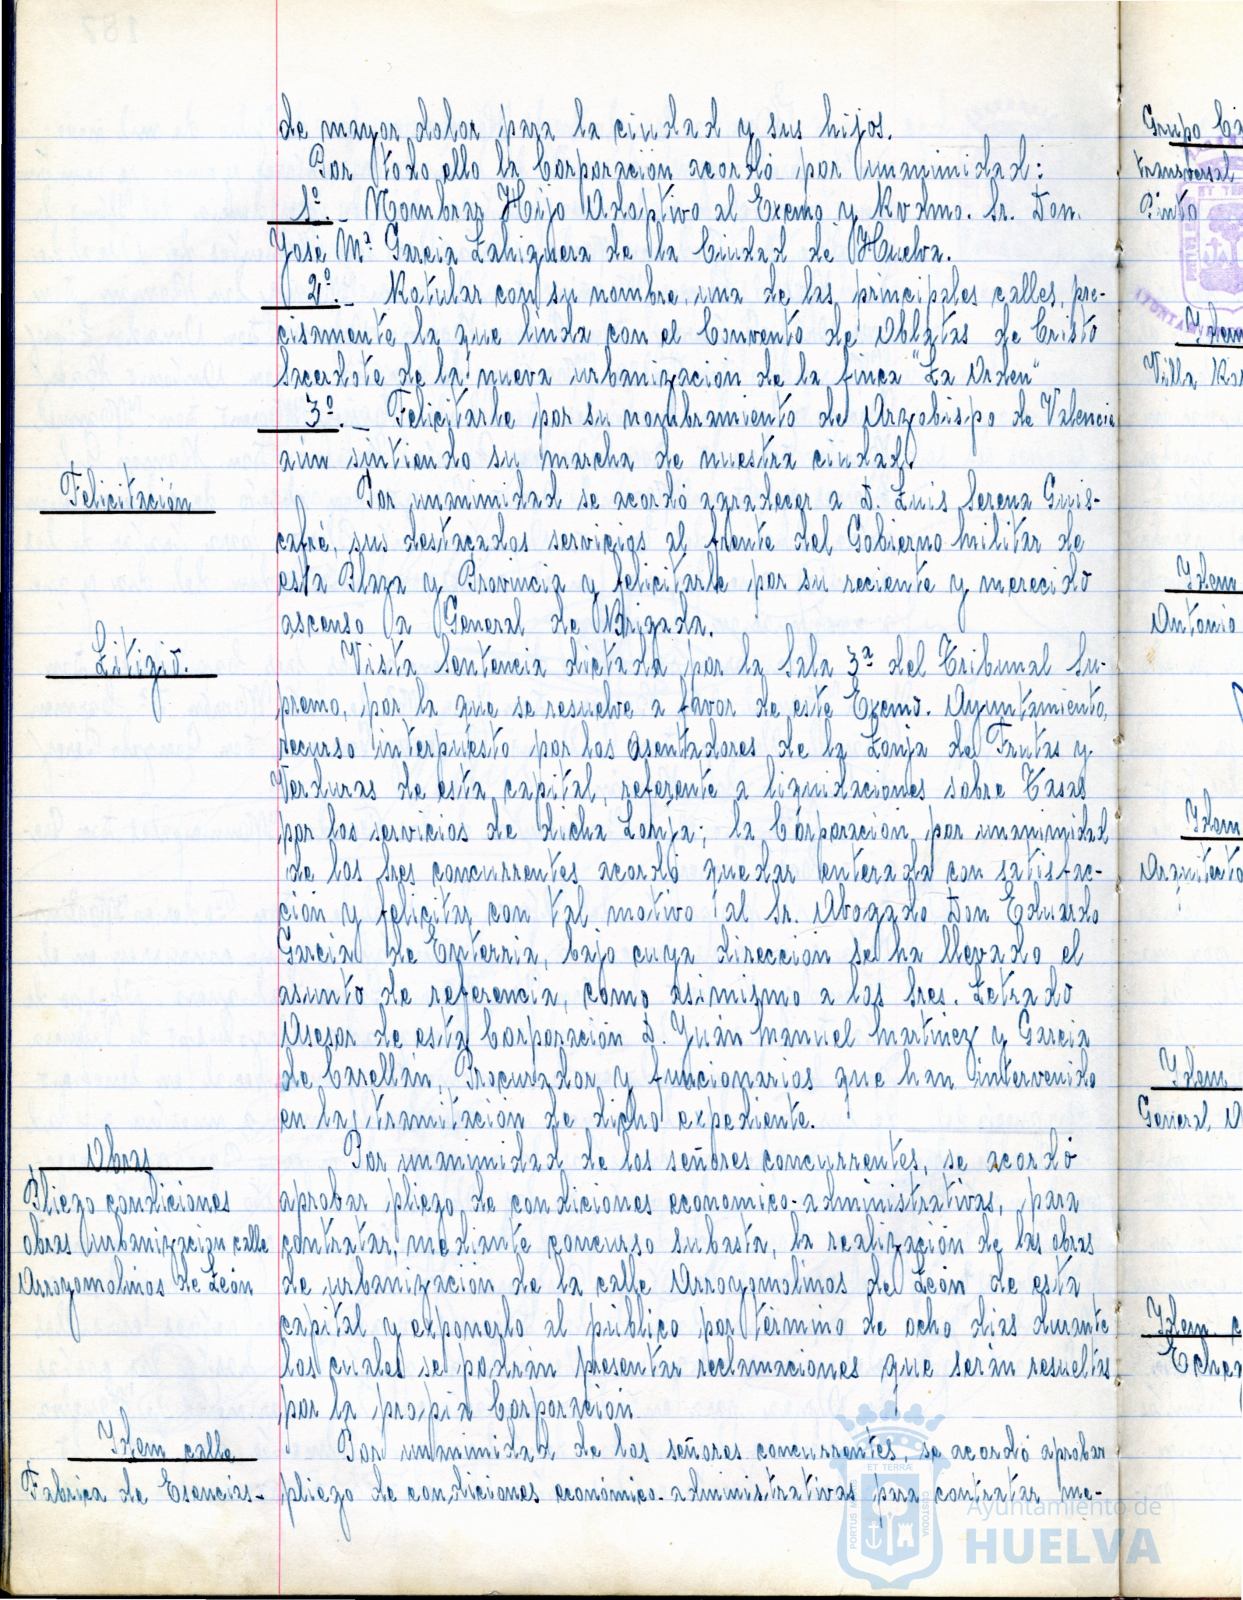 de mayor dolor para la ciudad y sus hijos.
Por todo ello la Corporación acordó por unanimidad:
1º.- Nombrar Hijo Adoptivo al Excmo y Rvdmo. Sr. Don.
José Mª Garcia Lahiguera de la Ciudad de Huelva.
2º.- Rotular con su nombre, una de las principales calles, pre-
cisamente la que linda con el Convento de Oblatas de Cristo
Sacerdote de la nueva urbanización de la finca "La Orden"
3º.- Felicitarle por su nombramiento de Arzobispo de Valencia
aún sintiendo su marcha de nuestra ciudad.
Felicitación
Por unanimidad se acordó agradecer a D. Luis Serena Guis-
cafré, sus destacados servicios al frente del Gobierno Militar de
esta Plaza y Provincia y felicitarle por su reciente y merecido
ascenso a General de Brigada.
Litigio.
Vista Sentencia dictada por la Sala 3ª del Tribunal Su-
premo, por la que se resuelve a favor de este Excmo. Ayuntamiento,
recurso interpuesto por los Asentadores de la Lonja de Frutas y
Verduras de esta capital, referente a liquidaciones sobre Tasas
por los servicios de dicha Lonja; la Corporación, por unanimidad
de los Sres concurrentes acordó quedar enterada con satisfac-
ción y felicitar con tal motivo al Sr. Abogado Don Eduardo
Garcia de Enterria, bajo cuya dirección se ha llevado el
asunto de referencia, como asimismo a los Sres. Letrado
Asesor de esta Corporación D. Juan Manuel Martinez y Garcia
de Carellán, Procurador y funcionarios que han intervenido
en las tramitación de dicho expediente.
Obras
Pliego condiciones
obras urbanización calle
Arroyomolinos de León
Por unanimidad de los señores concurrentes, se acordó
aprobar pliego de condiciones economico-administrativas, para
contratar, mediante concurso subasta, la realización de las obras
de urbanización de la calle Arroyomolinos de León de esta
capital y exponerlo al público por término de ocho dias durante
los cuales se podrán presentar reclamaciones que serán resueltas
por la propia Corporación
Idem calle
Fabrica de Esencias-
Por unanimidad de los señores concurrentes, se acordó aprobar
pliego de condiciones económico-administrativas para contratar me-
Grupo
transversal
Pinto
Idem
Villa
Idem
Antonio
Idem
Arquitecto
Idem
General
Idem
PORTUS MARIS ET TERRAE CUSTODIA
Ayuntamiento de
HUELVA